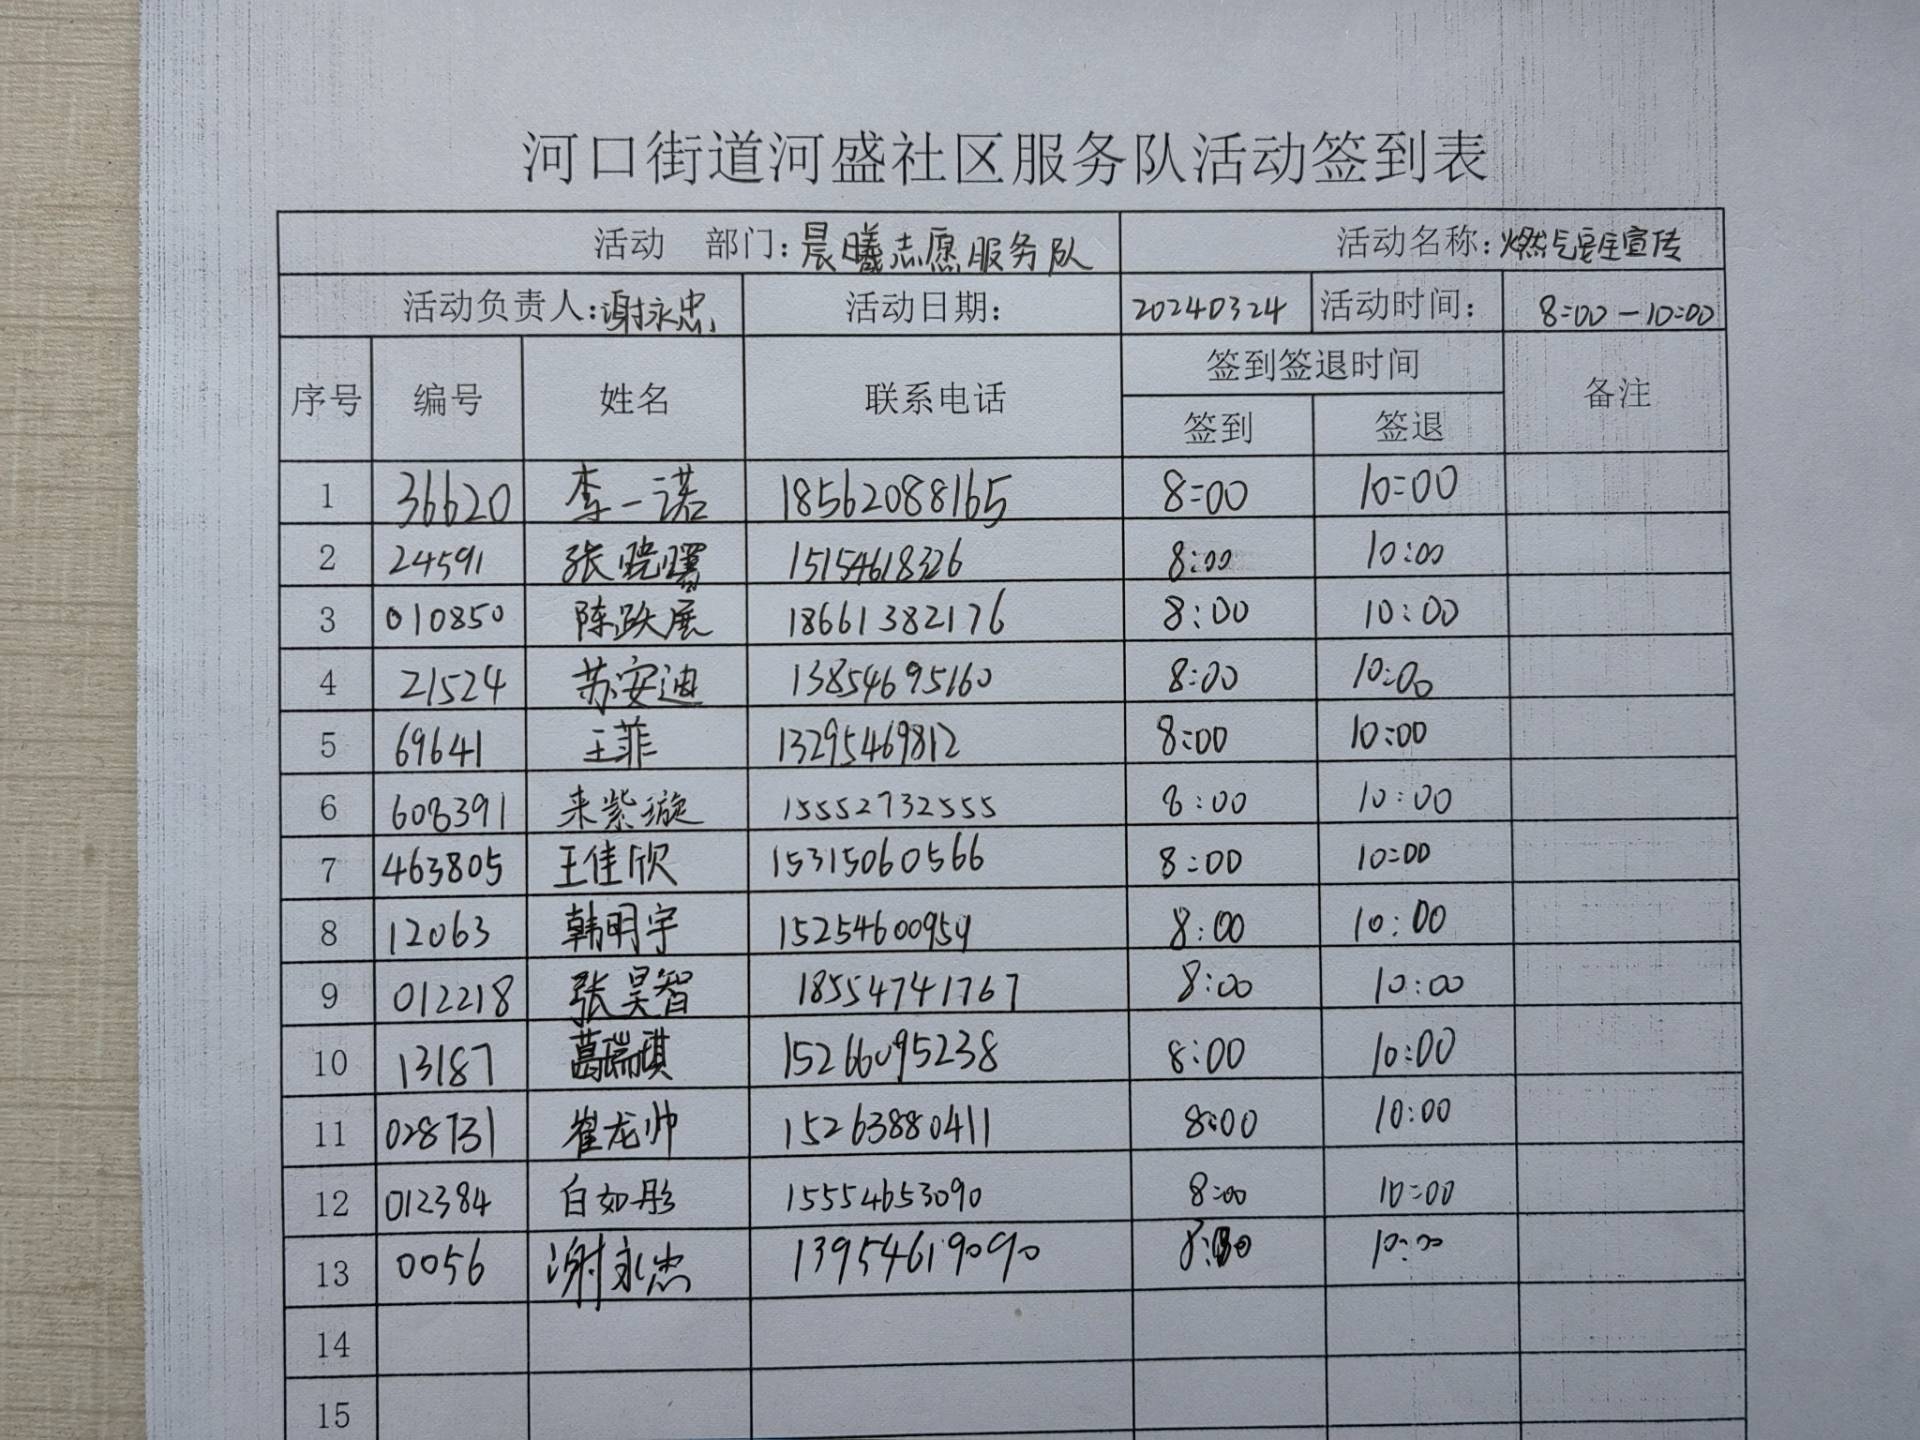 河口街道河盛社区服务队活动签到表
活动 部门:晨曦志愿服务队 活动名称:燃气安全宣传
活动负责人:谢永忠 活动日期: 20240324 活动时间: 8:00-10:00
序号 编号 姓名 联系电话 签到签退时间 备注
签到 签退
1 36620 李一诺 18562088165 8:00 10:00
2 24591 张晓曙 15154618326 8:00 10:00
3 010850 陈跃展 18661382176 8:00 10:00
4 21524 苏安迪 13854695160 8:00 10:00
5 69641 王菲 13295469812 8:00 10:00
6 608391 来紫璇 15552732555 8:00 10:00
7 463805 王佳欣 15315060566 8:00 10:00
8 12063 韩明宇 15254600959 8:00 10:00
9 012218 张昊智 18554741767 8:00 10:00
10 13187 葛瑞琪 15266095238 8:00 10:00
11 028731 崔龙帅 15263880411 8:00 10:00
12 012384 白如彤 15554653090 8:00 10:00
13 0056 谢永忠 13954619090 10:00
14
15